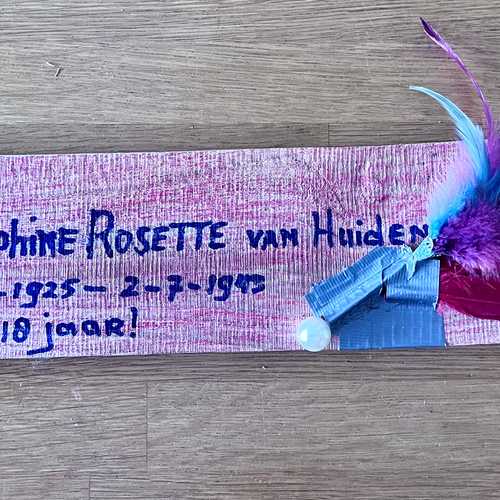 phine Rosette van Huiden
-1925 - 2-7-1943
18 jaar!